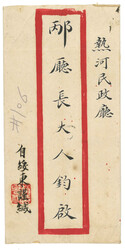 熱河民政廳
邴廳長大人鈞啟
自綏東蘿緘
#106